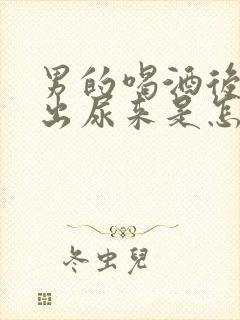 男的喝酒後
出尿来是怎
冬虫兒